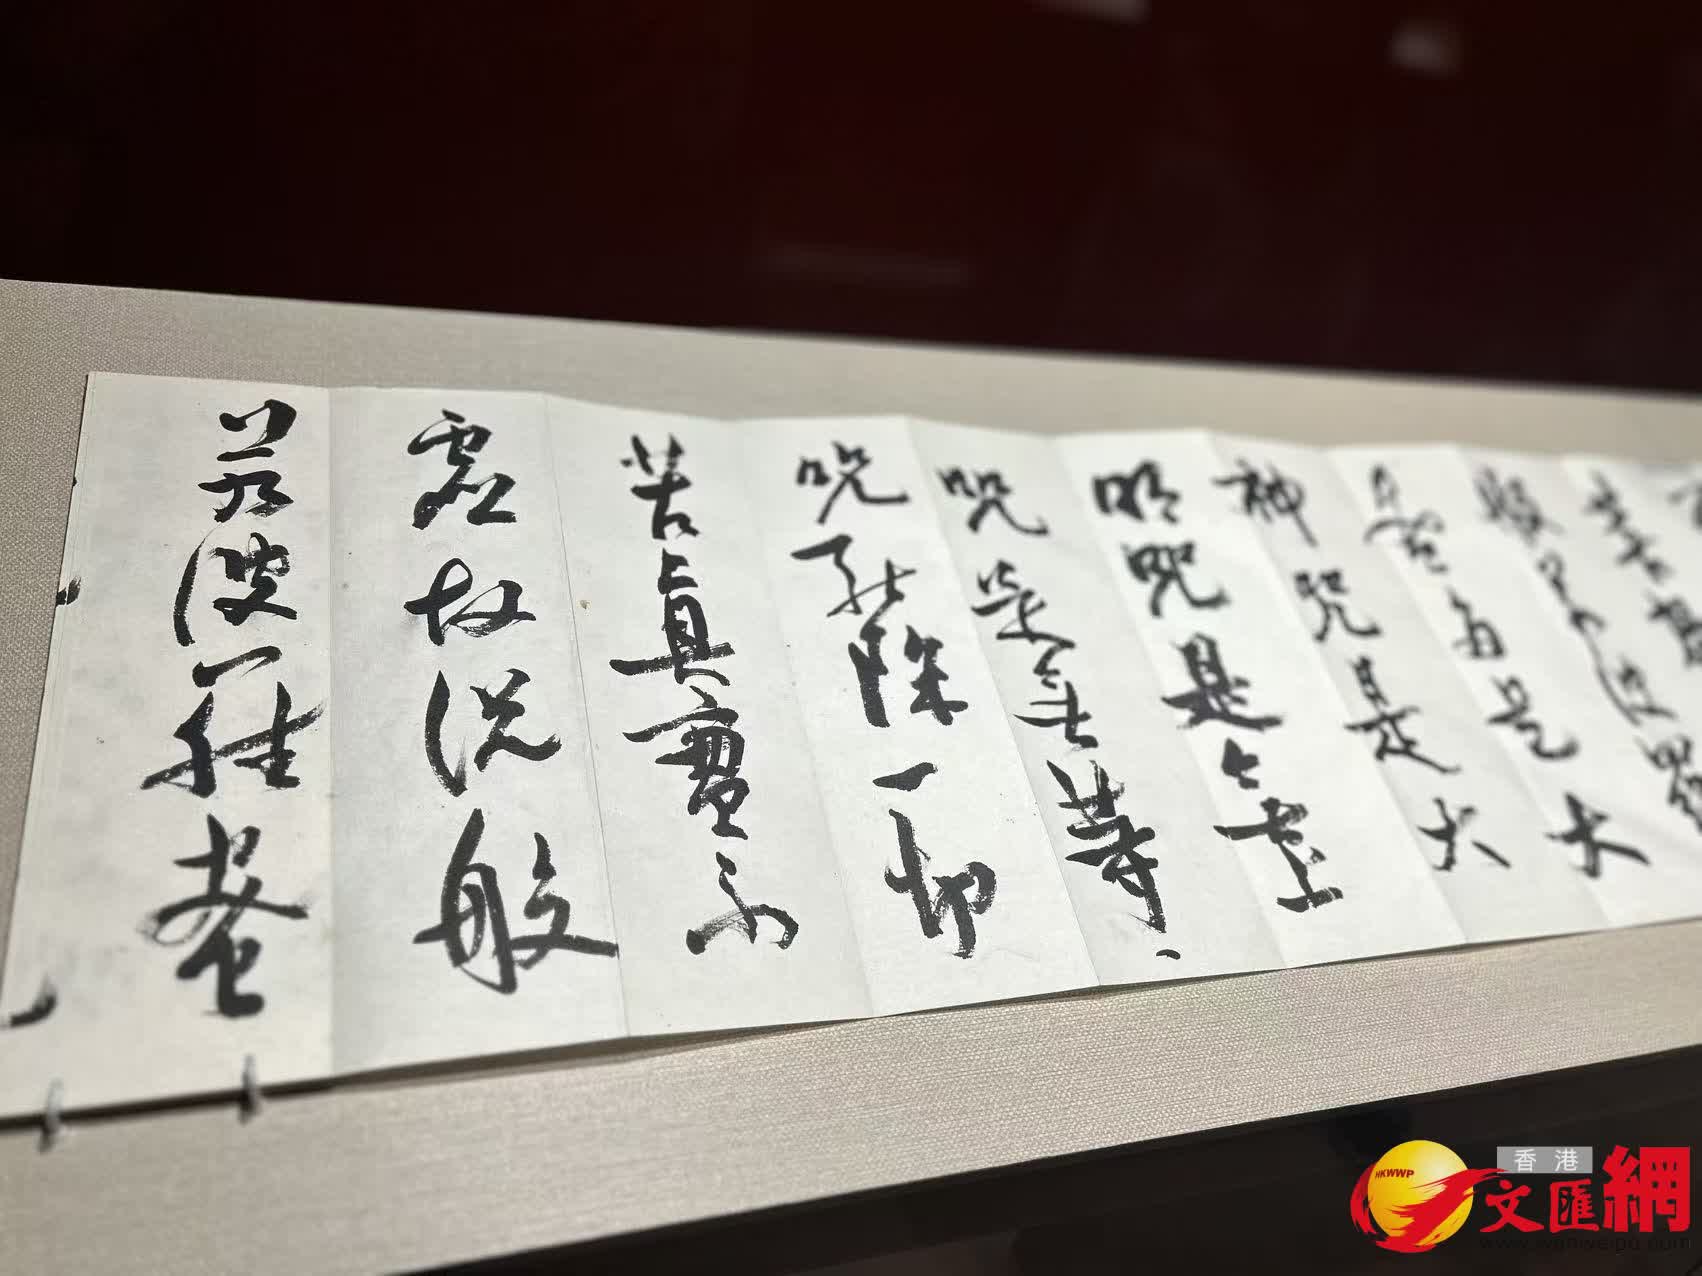 般若波羅
蜜多是大
神咒是大
明咒是無上
咒是無等、
咒能除一切
苦真實不
虛故說般
若波羅蜜
HKWWP
香港
文匯網
www.wenweipo.com